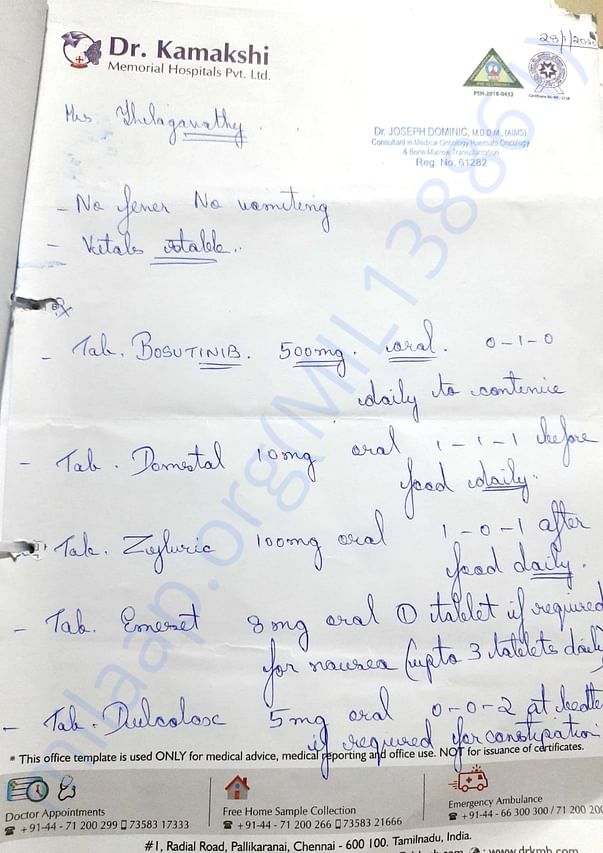 28/1/20
Dr. Kamakshi
Memorial Hospitals Pvt. Ltd.
PSH-2018-0432
Mrs Thilagavathy
Dr. JOSEPH DOMINIC, M.D.D.M., (AIIMS)
Consultant in Medical Oncology Haemato Oncology
& Bone Marrow Transplantation
Reg. No. 61282
- No fever No vomiting
- Vitals stable..
Rx
- Tab. BOSUTINIB. 500mg. oral. 0-1-0
daily to continue
- Tab. Domstal 10mg oral 1-1-1 before
food daily.
- Tab. Zyloric 100mg oral 1-0-1 after
food daily.
- Tab. Emeset 8mg oral ① tablet if required
for nausea (upto 3 tablets daily)
- Tab. Dulcolax 5mg oral 0-0-2 at
if required for constipation
milaap.org(MIL138861)
* This office template is used ONLY for medical advice, medical reporting and office use. NOT for issuance of certificates.
Doctor Appointments
+91-44 - 71 200 299 73583 17333
Free Home Sample Collection
+91-44 - 71 200 266 73583 21666
Emergency Ambulance
+91-44 - 66 300 300 / 71 200 200
#1, Radial Road, Pallikaranai, Chennai - 600 100. Tamilnadu, India.
: www.drkmh.com